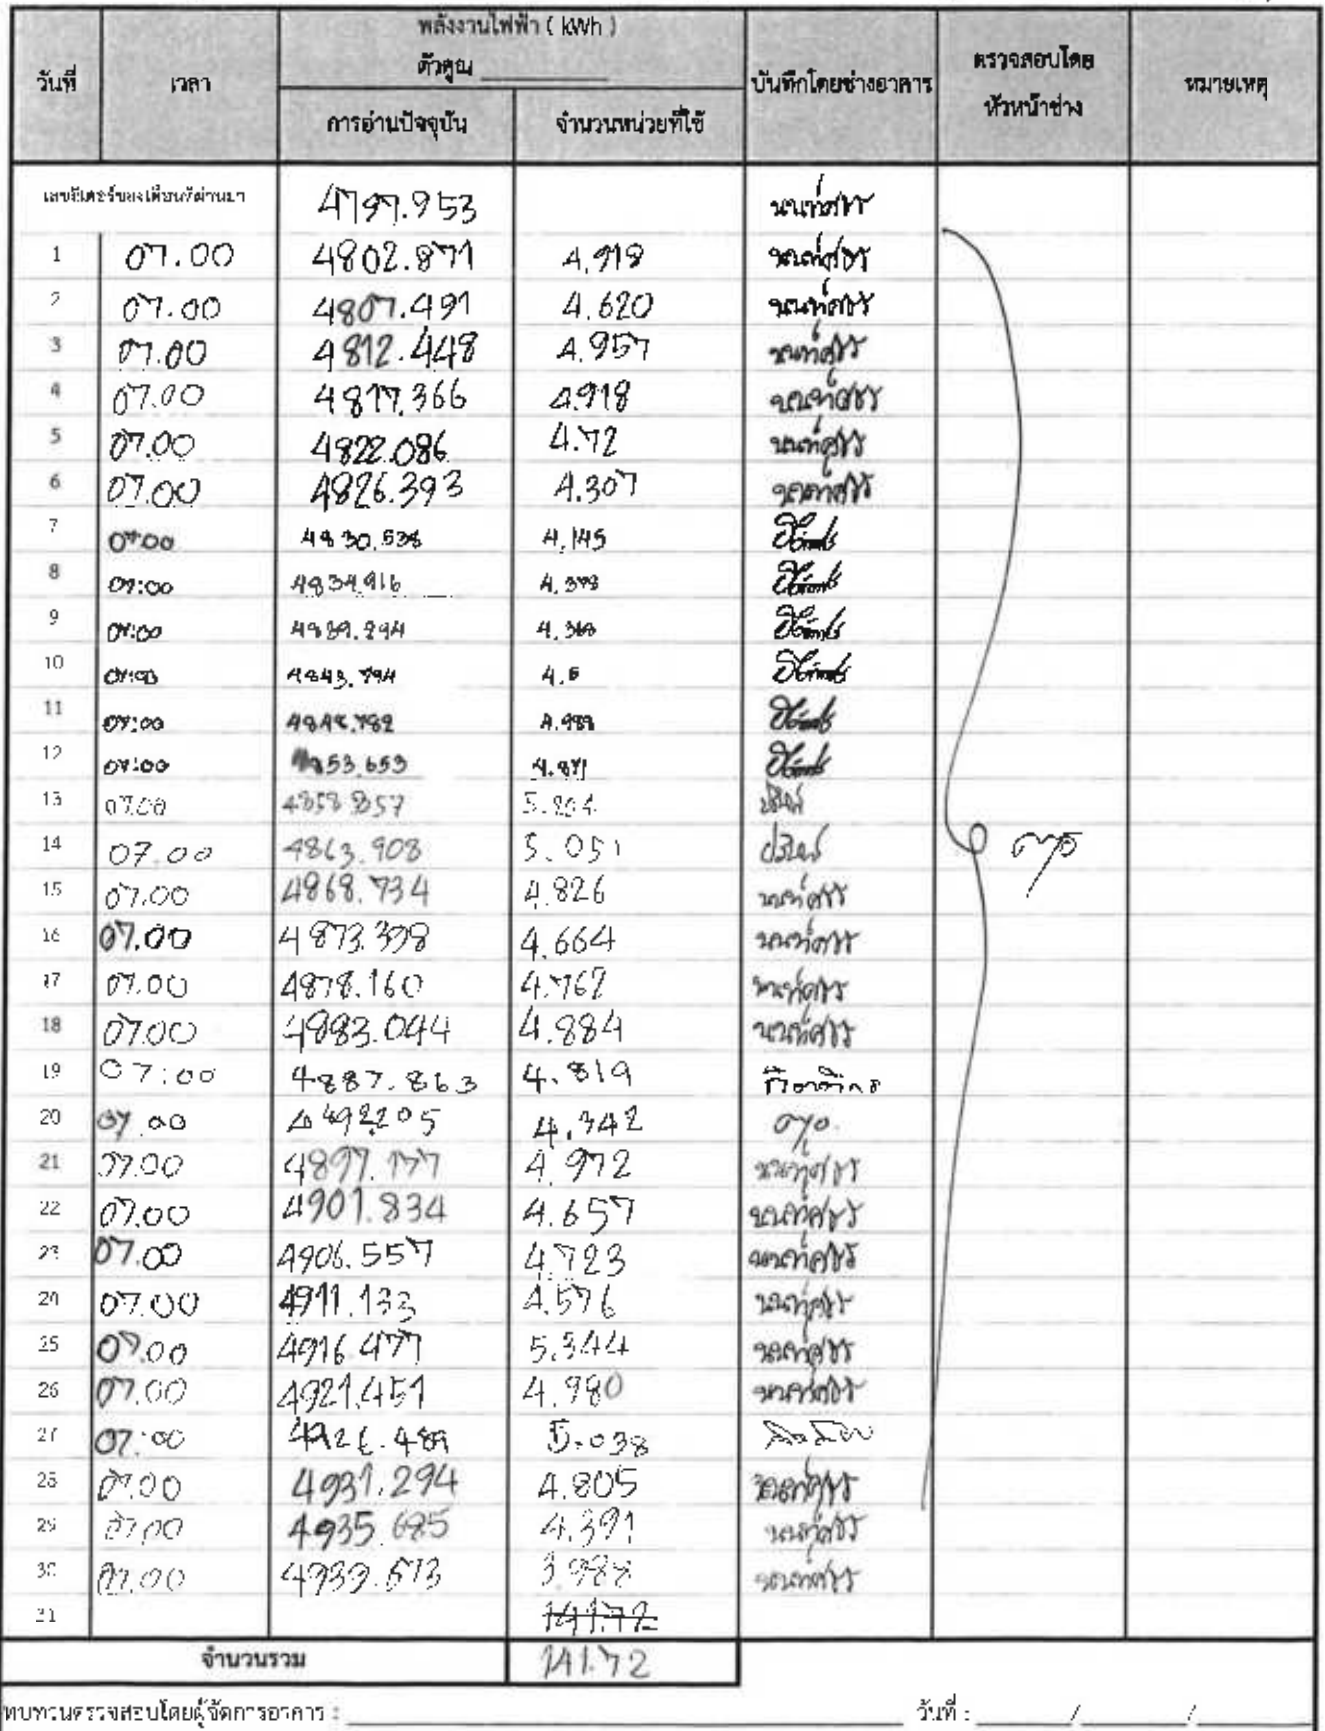 พลังงานไฟฟ้า ( kWh )
วันที่ เวลา ตัวคูณ บันทึกโดยช่างอาคาร ตรวจสอบโดย หัวหน้าช่าง หมายเหตุ
การอ่านปัจจุบัน จำนวนหน่วยที่ใช้
เลขมิเตอร์ของเดือนที่ผ่านมา 4797.953 นนท์ศรร
1 07.00 4802.871 4.918 นนท์ศรร
2 07.00 4807.491 4.620 นนท์ศรร
3 07.00 4812.448 4.957 นนท์ศรร
4 07.00 4817.366 4.918 นนท์ศรร
5 07.00 4822.086 4.72 นนท์ศรร
6 07.00 4826.393 4.307 นนท์ศรร
7 07:00 4830.538 4.145
8 07:00 4834.916 4.378
9 07:00 4839.294 4.368
10 07:00 4843.794 4.5
11 07:00 4848.782 4.988
12 07:00 4853.653 4.871
13 07.00 4858.857 5.204
14 07.00 4863.908 5.051
15 07.00 4868.734 4.826 นนท์ศรร
16 07.00 4873.398 4.664 นนท์ศรร
17 07.00 4878.160 4.762 นนท์ศรร
18 07.00 4883.044 4.884 นนท์ศรร
19 07:00 4887.863 4.819
20 07.00 4892205 4.342
21 07.00 4897.177 4.972 นนท์ศรร
22 07.00 4901.834 4.657 นนท์ศรร
23 07.00 4906.557 4.723 นนท์ศรร
24 07.00 4911.133 4.576 นนท์ศรร
25 07.00 4916.477 5.344 นนท์ศรร
26 07.00 4921.451 4.980 นนท์ศรร
27 07:00 4926.489 5.038
28 07.00 4931.294 4.805 นนท์ศรร
29 07.00 4935.685 4.391 นนท์ศรร
30 07.00 4939.673 3.988 นนท์ศรร
31 141.72
จำนวนรวม 141.72
ทบทวนตรวจสอบโดยผู้จัดการอาคาร : วันที่ : / /